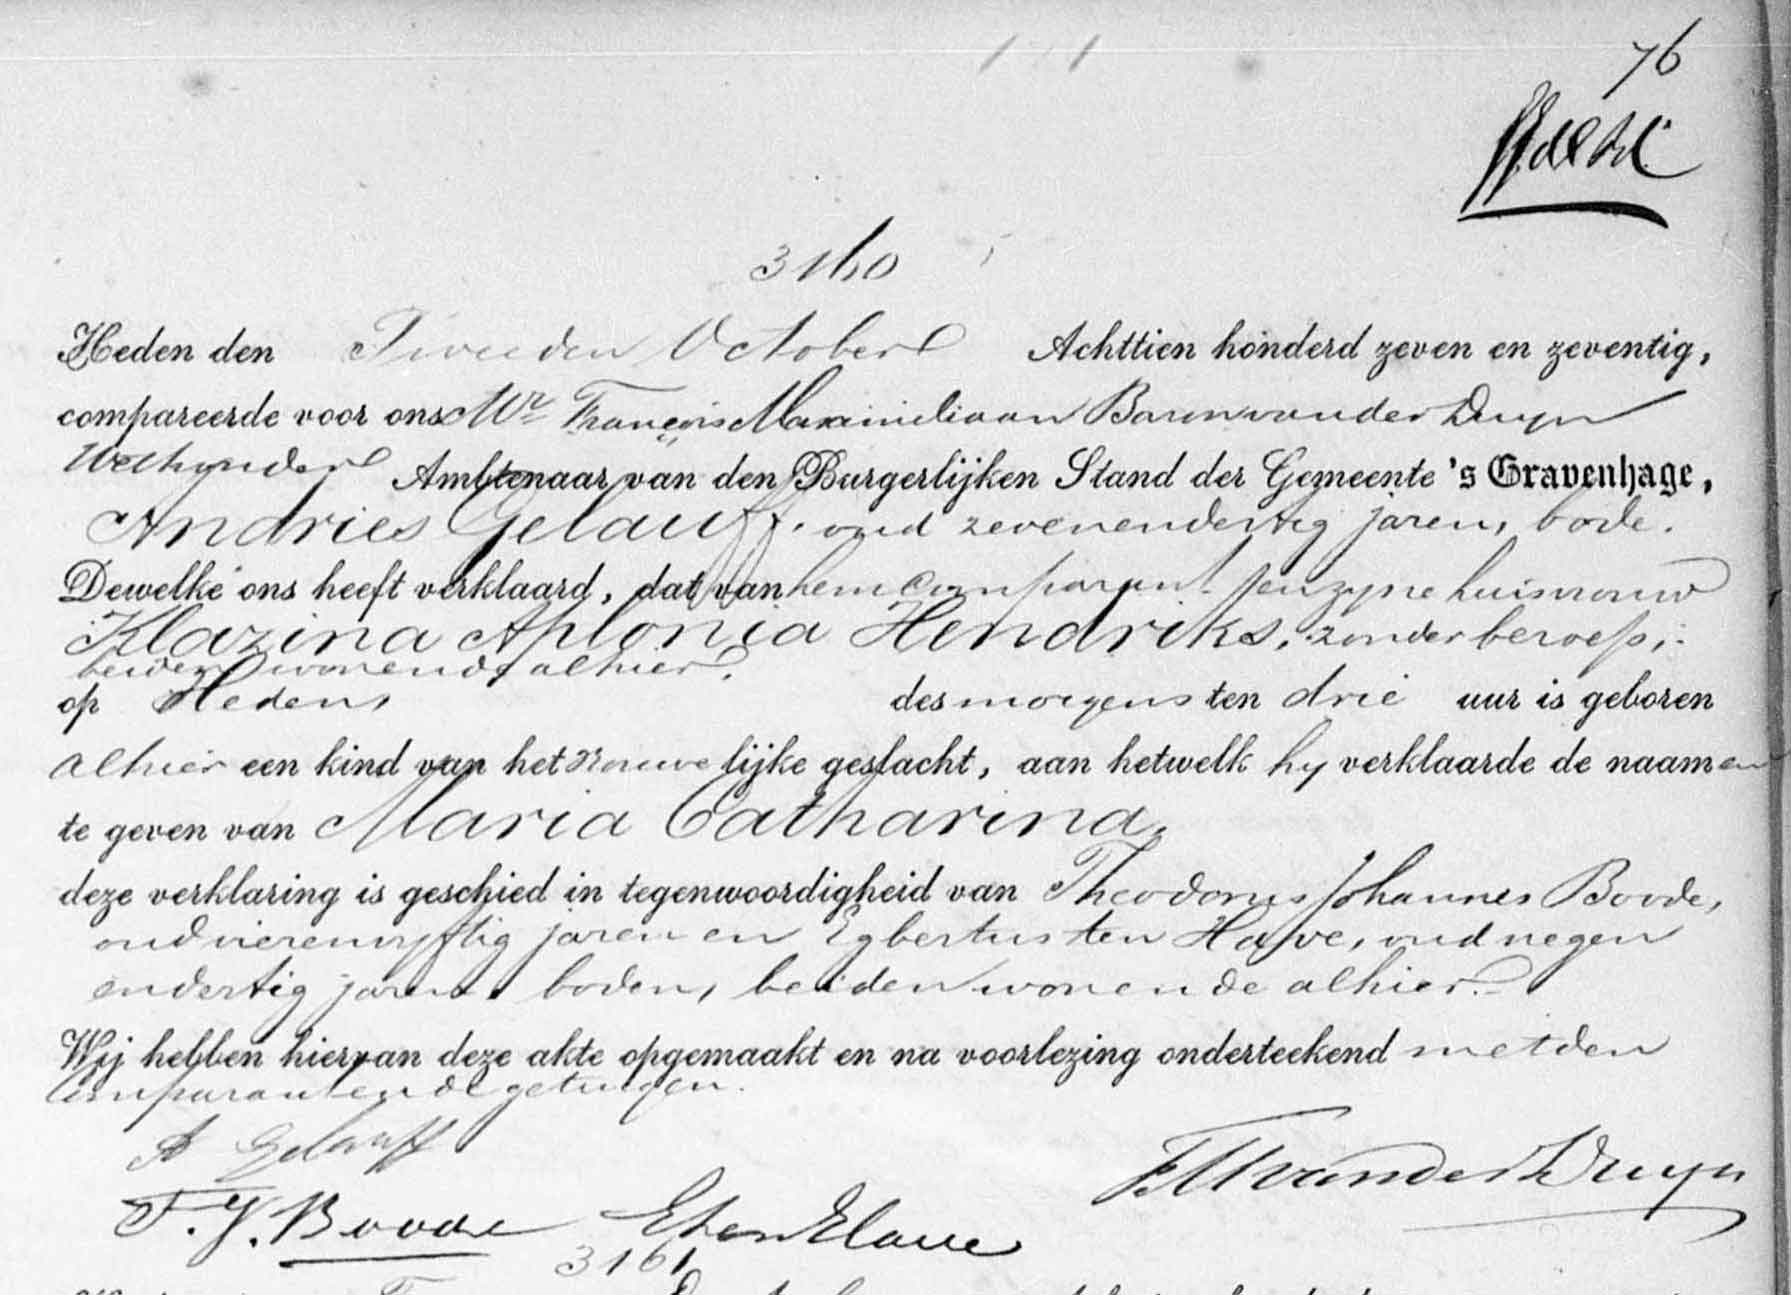 76
3160
Heden den Tweeden October Achttien honderd zeven en zeventig,
compareerde voor ons Mr. François Maximiliaan Baron van der Duyn
Ambtenaar van den Burgerlijken Stand der Gemeente 's Gravenhage,
Andries Gelauff. oud zevenendertig jaren, bode.
Dewelke ons heeft verklaard, dat van hem Comparant en zijne huisvrouw
Klazina Aplonia Hendriks, zonder beroep,
beiden wonende alhier,
op Heden, des morgens ten drie uur is geboren
alhier een kind van het vrouwelijke geslacht, aan hetwelk hy verklaarde de naamen
te geven van Maria Catharina,
deze verklaring is geschied in tegenwoordigheid van Theodorus Johannes Boode,
oud vierenvyftig jaren en Egbertus ten Have, oud negen
endertig jaren, boden, beiden wonende alhier.
Wij hebben hiervan deze akte opgemaakt en na voorlezing onderteekend met den
Comparant en de getuigen.
A Gelauff
FM van der Duyn
T. J. Boode
3161